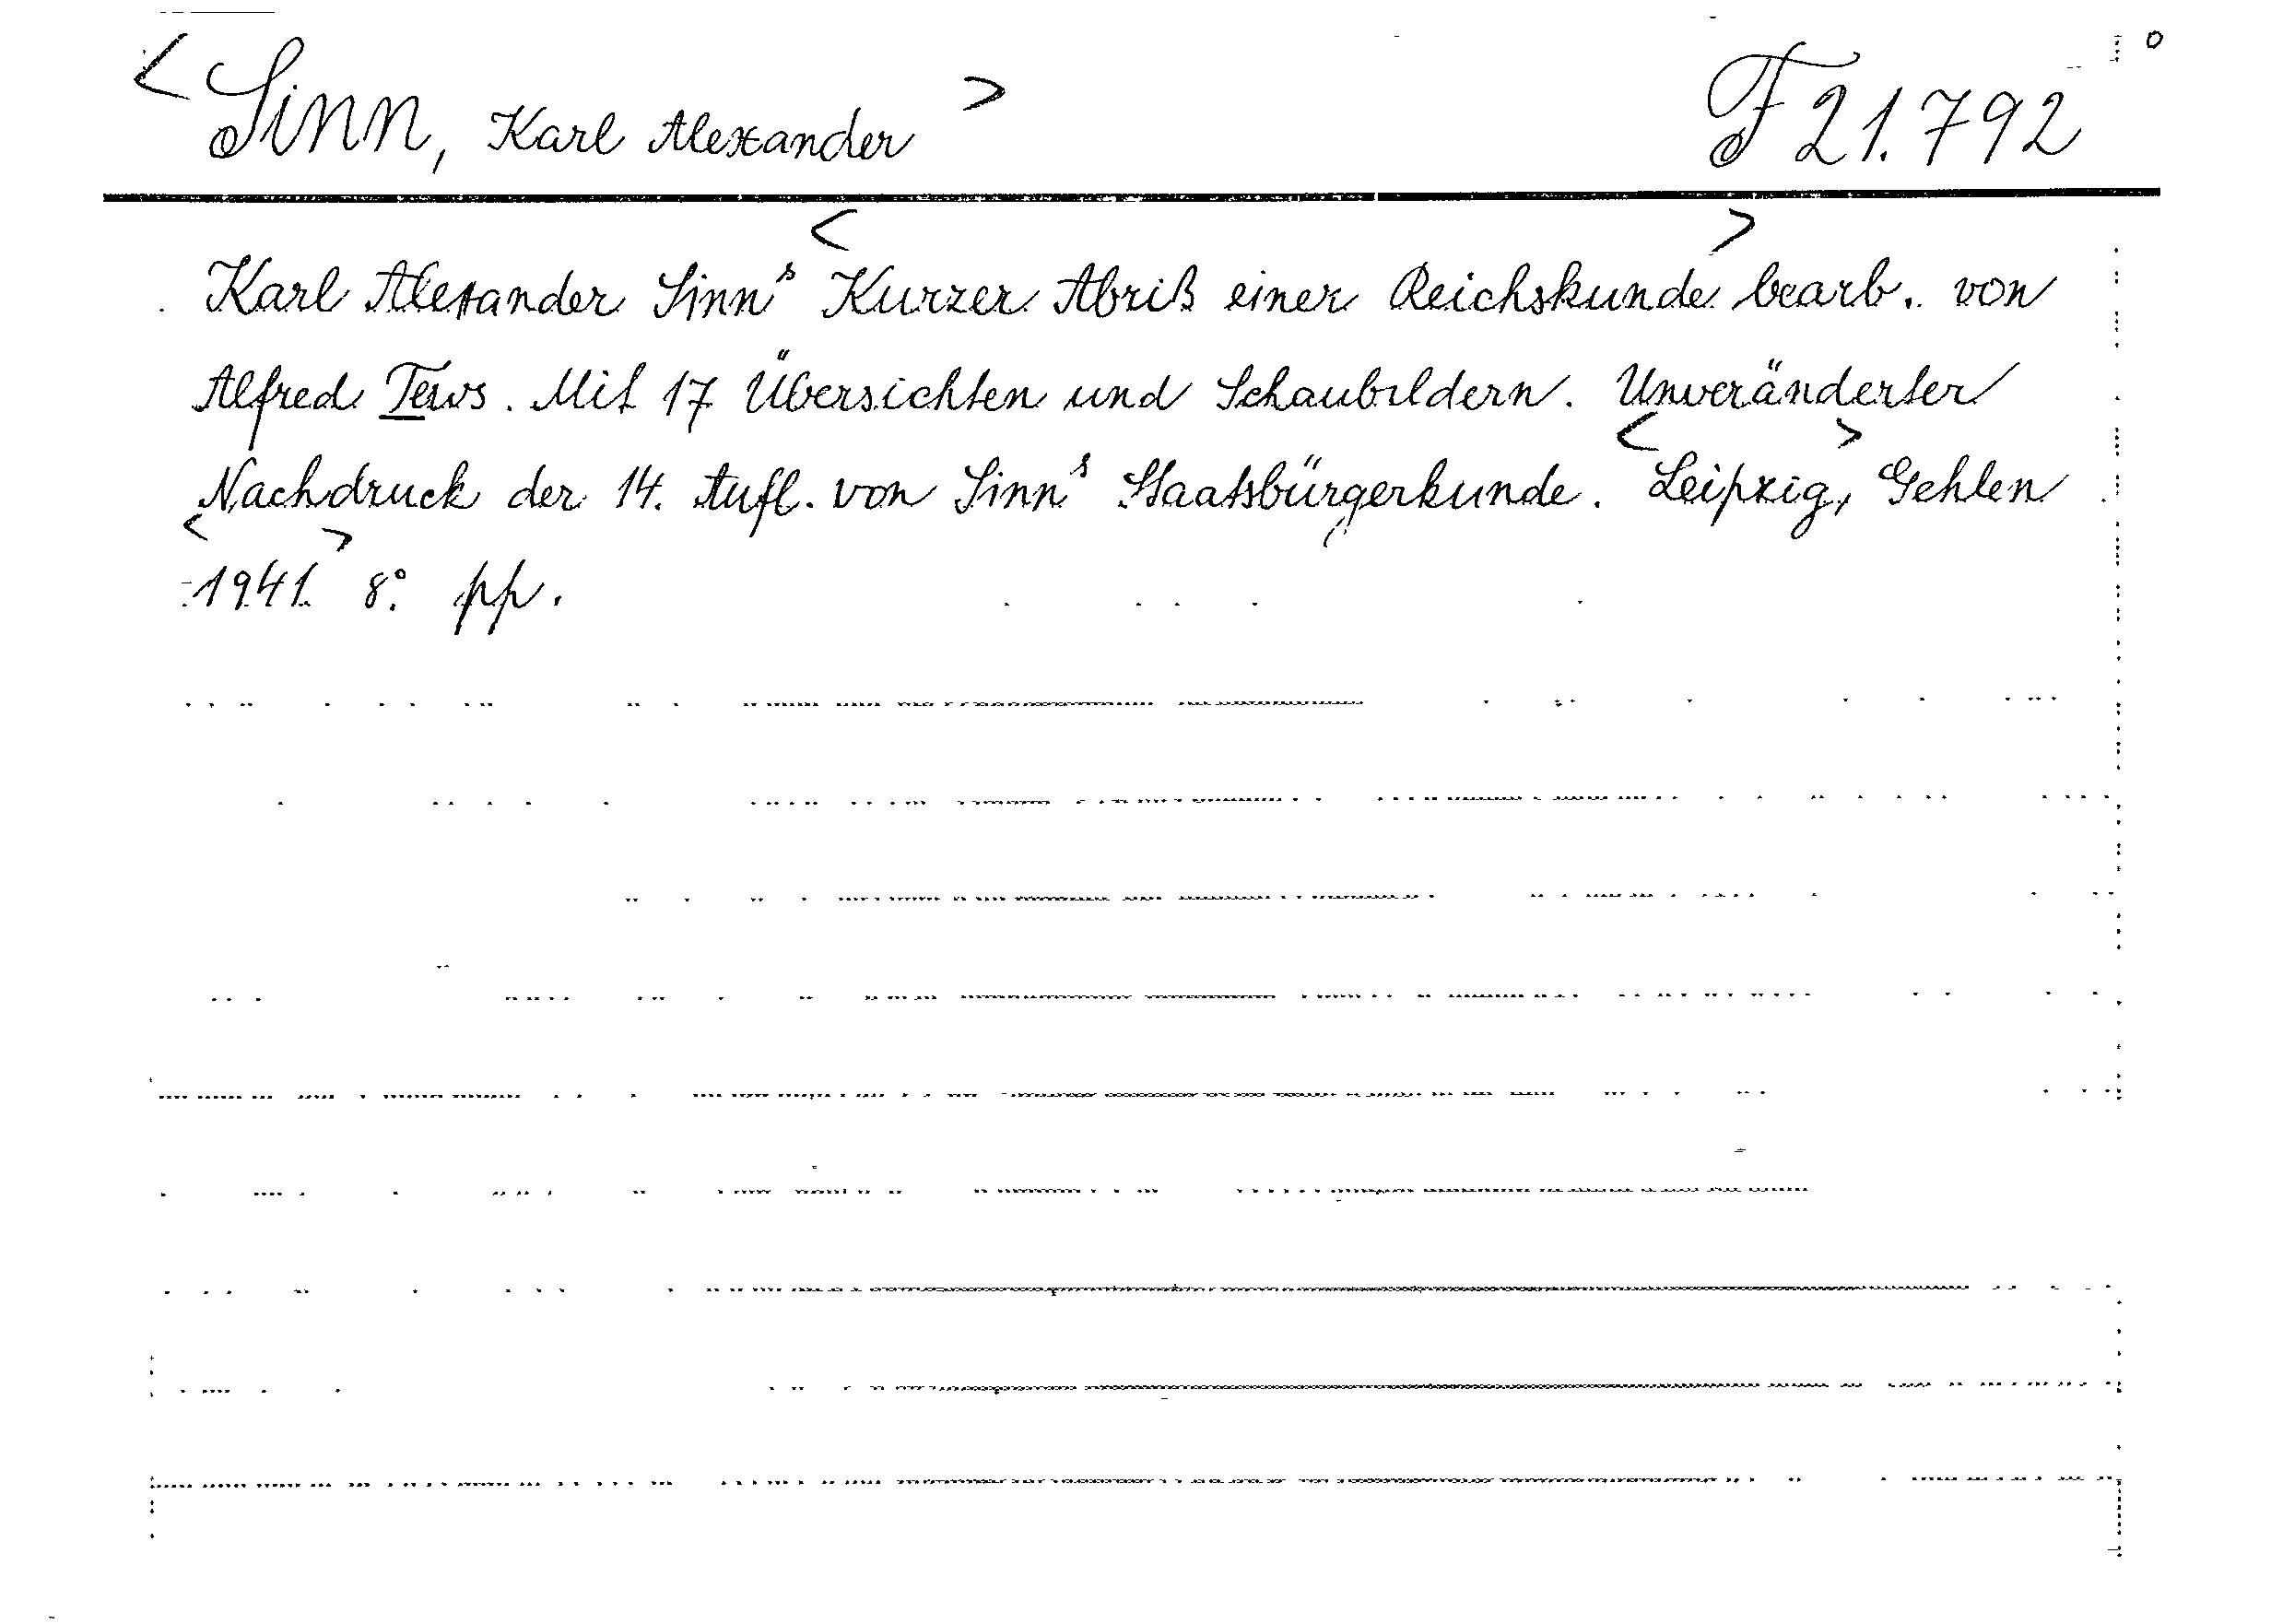 <Sinn, Karl Alexander> F 21.792
Karl Alexander Sinn's <Kurzer Abriß einer Reichskunde> bearb. von
Alfred Tews. Mit 17 Übersichten und Schaubildern. Unveränderter
Nachdruck der 14. Aufl. von Sinn's Staatsbürgerkunde. <Leipzig>, Gehlen
<1941> 8°. pp.